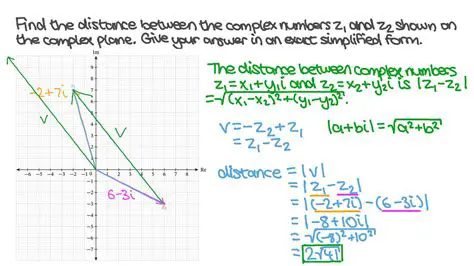 Find the distance between the complex numbers z₁ and z₂ shown on
the complex plane. Give your answer in an exact simplified form.
Im
-2+7i
v
v
6-3i
Re
-6 -5 -4 -3 -2 -1 1 2 3 4 5 6 7 8 9
The distance between complex numbers
z₁=x₁+y₁i and z₂=x₂+y₂i is |z₁-z₂|
=√(x₁-x₂)²+(y₁-y₂)².
v=-z₂+z₁
=z₁-z₂
|a+bi|=√a²+b²
distance = |v|
= |z₁-z₂|
= |(-2+7i)-(6-3i)|
= |-8+10i|
= √(-8)²+10²
= 2√41